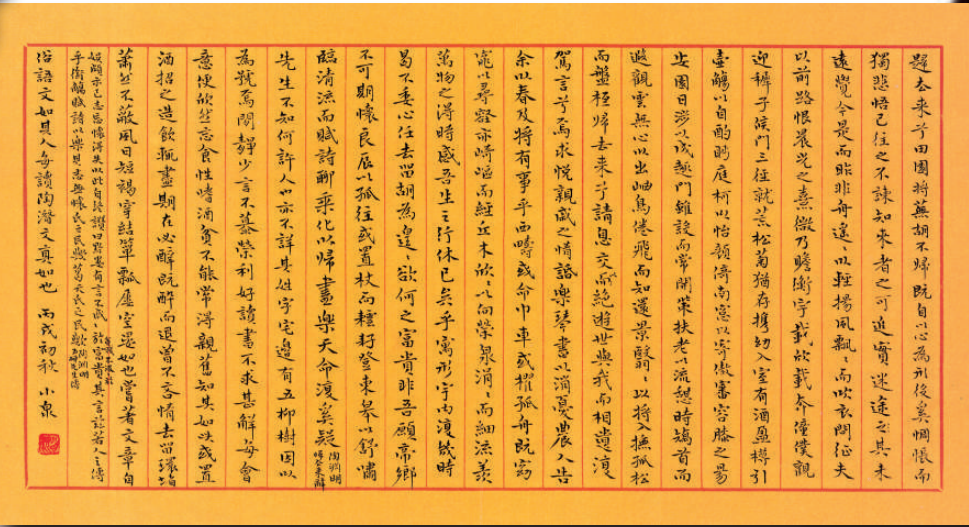 歸去來兮田園將蕪胡不歸既自以心為形役奚惆悵而
獨悲悟已往之不諫知來者之可追實迷途之其未
遠覺今是而昨非舟遙〻以輕揚風飄〻而吹衣問征夫
以前路恨晨光之熹微乃瞻衡宇載欣載奔僮僕觀
迎稚子候門三徑就荒松菊猶存攜幼入室有酒盈樽引
壺觴以自酌眄庭柯以怡顏倚南窗以寄傲審容膝之易
安園日涉以成趣門雖設而常關策扶老以流憩時矯首而
遐觀雲無心以出岫鳥倦飛而知還景翳〻以將入撫孤松
而盤桓歸去來兮請息交而絕遊世與我而相遺復
駕言兮焉求悅親戚之情話樂琴書以消憂農人告
余以春及將有事乎西疇或命巾車或櫂孤舟既窈
窕以尋壑亦崎嶇而經丘木欣〻以向榮泉涓〻而細流羨
萬物之得時感吾生之行休已矣乎寓形宇內復幾時
曷不委心任去留胡為遑〻欲何之富貴非吾願帝鄉
不可期懷良辰以孤往或置杖而耘耔登東皋以舒嘯
臨清流而賦詩聊乘化以歸盡樂天命復奚疑 陶淵明歸去來辭
先生不知何許人也亦不詳其姓字宅邊有五柳樹因以
為號焉閑靜少言不慕榮利好讀書不求甚解每會
意便欣然忘食性嗜酒貧不能常得親舊知其如此或置
酒招之造飲輒盡期在必醉既醉而退曾不吝情去留環堵
蕭然不蔽風日短褐穿結簞瓢屢空晏如也嘗著文章自
娛頗示己志忘懷得失以此自終贊曰黔婁有言不戚〻於貧賤不汲〻於富貴其言茲若人之儔
乎銜觴賦詩以樂其志無懷氏之民歟葛天氏之民歟 陶淵明五柳先生傳
俗語文如其人每讀陶潛文真如也 丙戌初秋 小泉